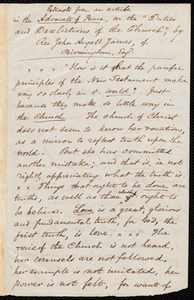 Extracts from an article
in the Advocate of Peace, on the "Duties
and Derelictions of the Church", by
Rev. John Angell James, of
Birmingham, Eng.
"How is it that the pacific
principles of the New Testament make
way so slowly in the world? Just
because they make so little way in
the Church. The church of Christ
does not seem to know her vocation,
as a mirror to reflect truth upon the
world. But she has committed
another mistake; and that is, in not
rightly appreciating what the truth is
Things that ought to be done are
truths, as well as those that ought to
be believed. Love is a great, glorious
and fundamental truth, for God the
first truth, is love.
voice of the Church is not heard,
her counsels are not followed,
her example is not imitated, her
power is not felt, for want of